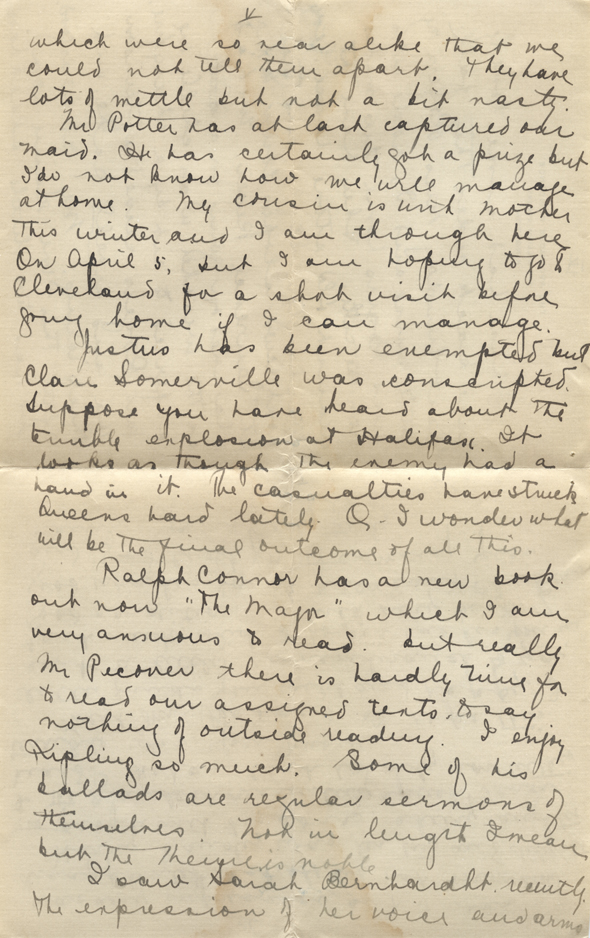 V
which were so near alike that we
could not tell them apart. They have
lots of mettle but not a bit nasty.
Mr Potter has at last captured our
maid. He has certainly got a prize but
I do not know how we will manage
at home. My cousin is with mother
this winter and I am through here
On April 5, but I am hoping to go to
Cleveland for a short visit before
going home if I can manage.
Justus has been exempted but
Clair Somerville was conscripted.
Suppose you have heard about the
terrible explosion at Halifax. It
looks as though the enemy had a
hand in it. The casualties have struck
Queens hard lately. O - I wonder what
will be the final outcome of all this.
Ralph Connor has a new book
out now "The Major" which I am
very anxious to read. but really
Mr Pecover there is hardly time for
to read our assigned texts, to say
nothing of outside reading. I enjoy
Kipling so much. Some of his
ballads are regular sermons of
themselves. Not in length I mean
but the theme is noble
I saw Sarah Bernhardht. recently.
The expression of her voice and arms